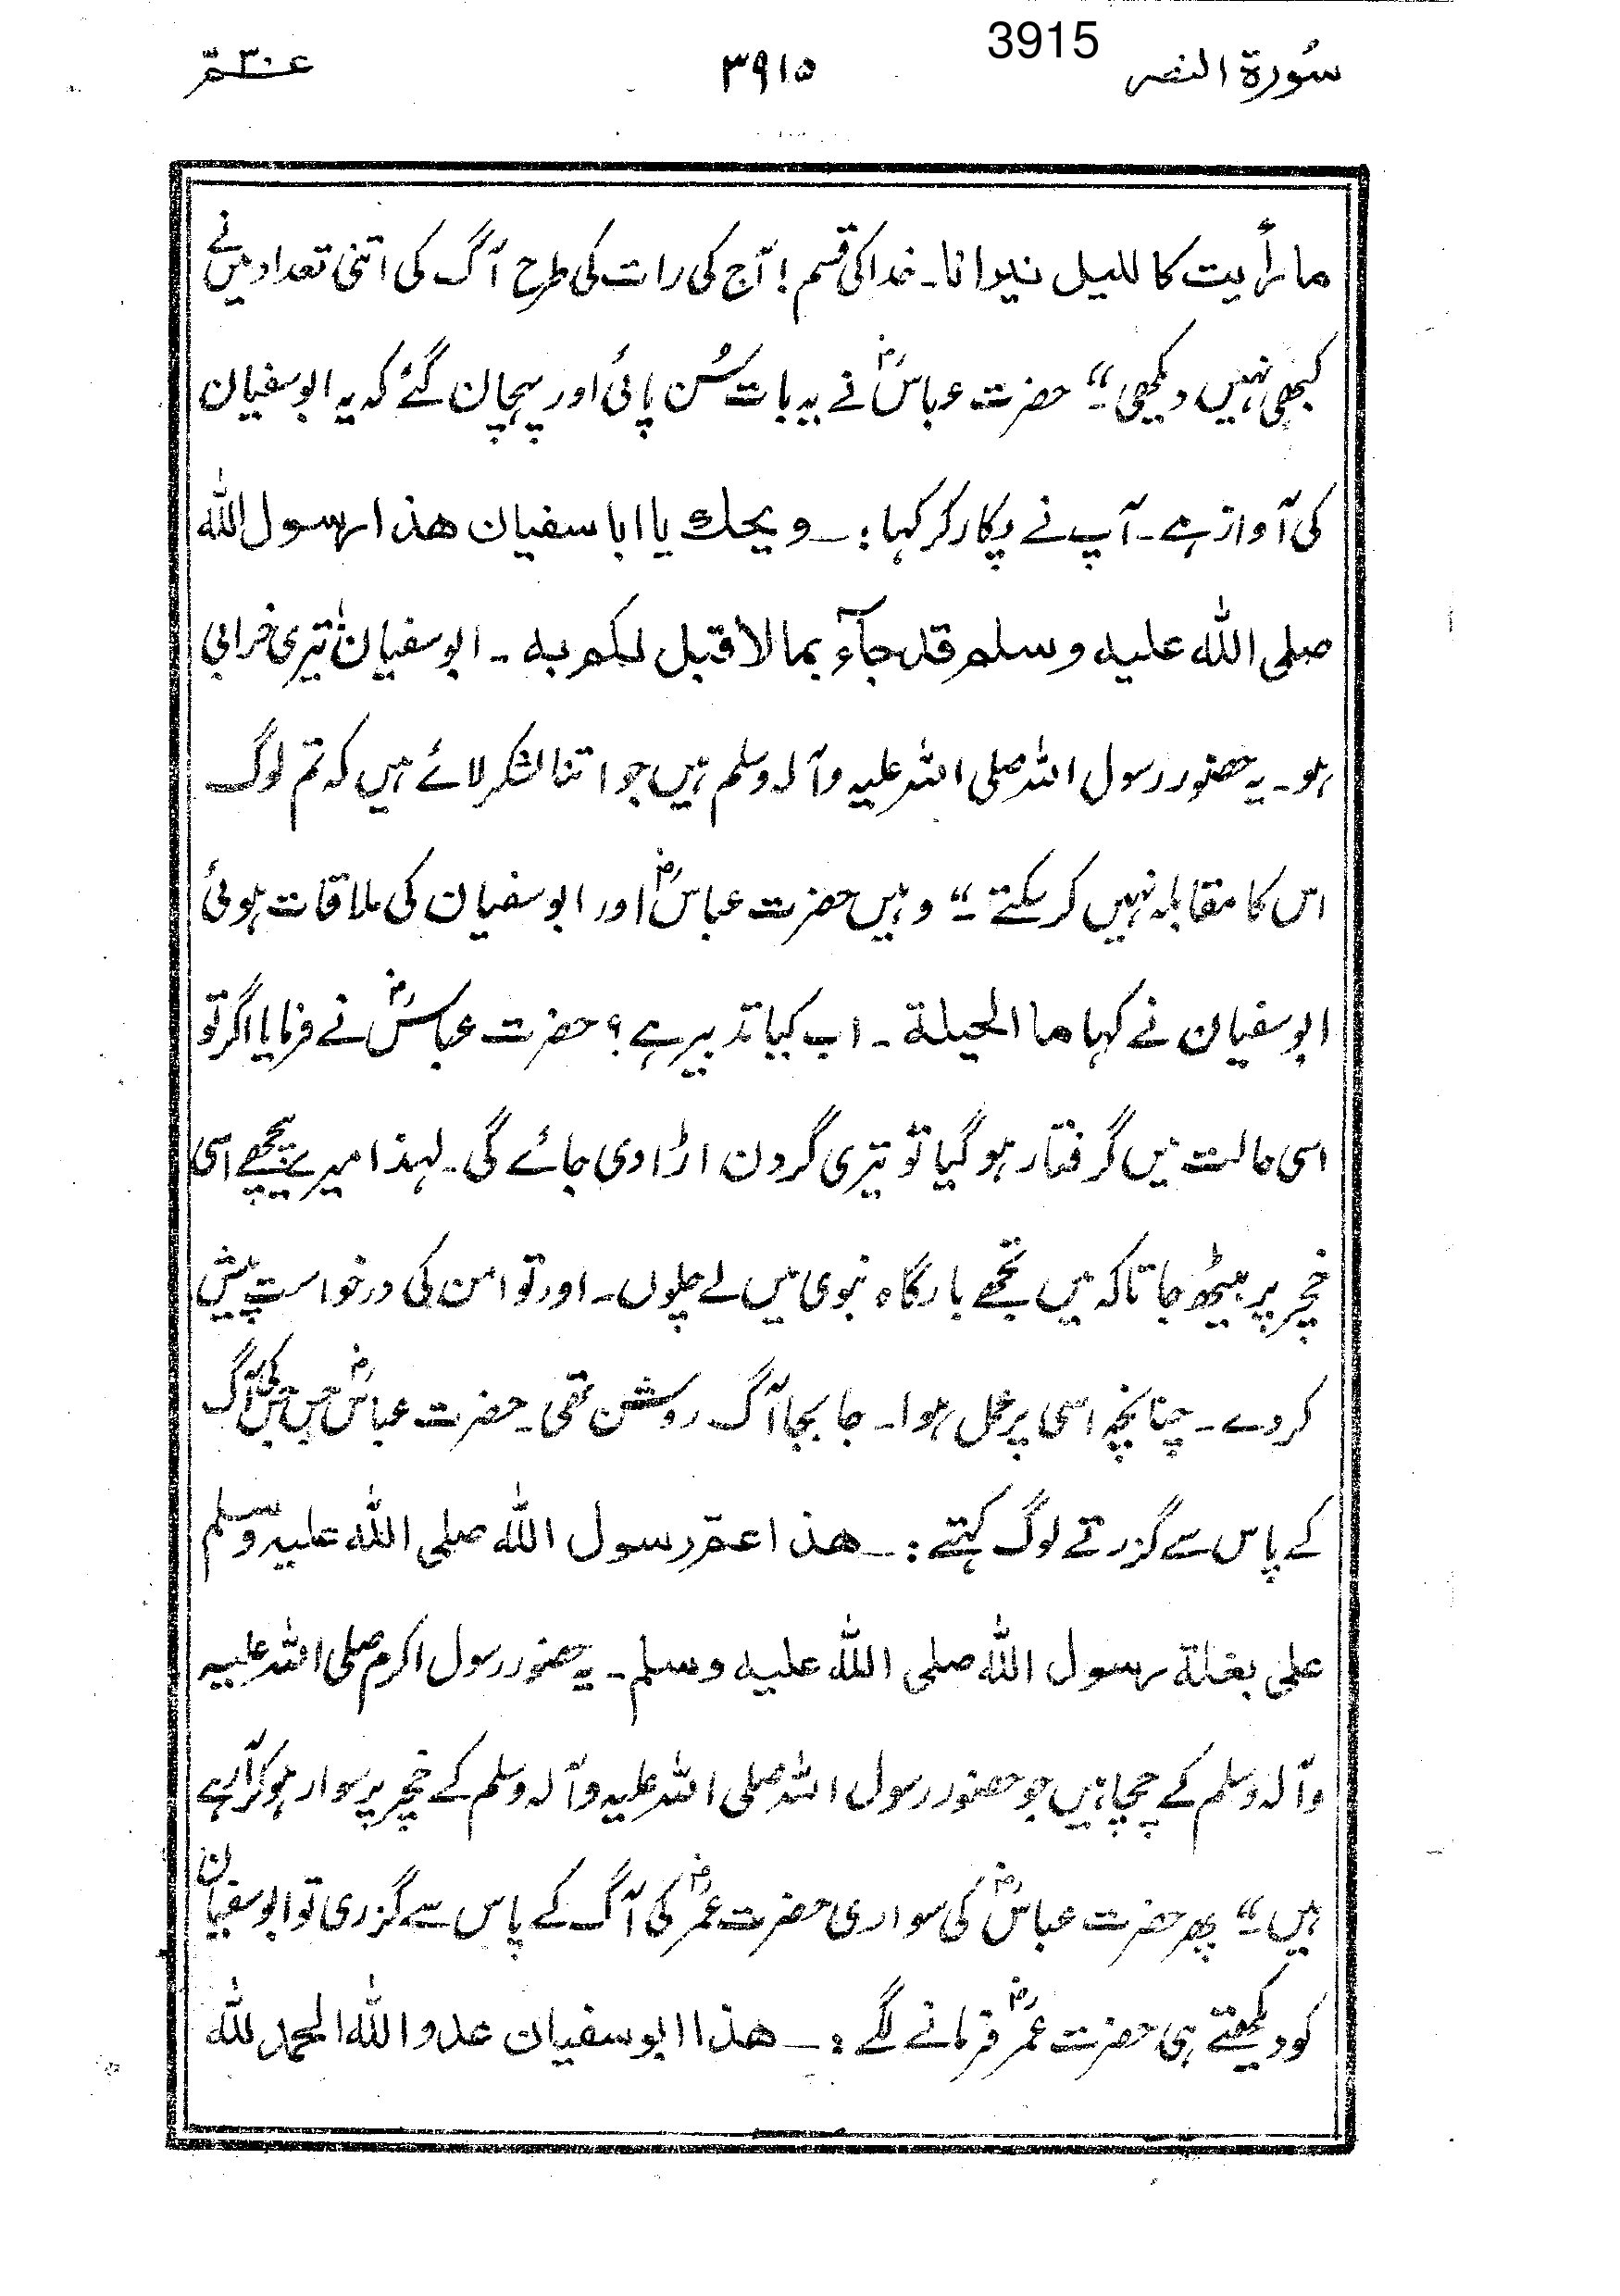 3915
سُورة النصر ٣٩١٥ عم ٣٠
ما رأيت كالليل نيوانا۔ خدا کی قسم! آج کی رات کی طرح آگ کی اتنی تعداد میں نے
کبھی نہیں دیکھی۔“ حضرت عباسؓ نے یہ بات سُن پائی اور پہچان گئے کہ یہ ابوسفیان
کی آواز ہے۔ آپ نے پکار کر کہا:۔ ويحك يا ابا سفيان هذا رسول الله
صلى الله عليه وسلم قد جآء بما لا قبل لكم به ۔ ابوسفیان تیری خرابی
ہو۔ یہ حضور رسول اللہ صلی اللہ علیہ وآلہ وسلم ہیں جو اتنا لشکر لائے ہیں کہ تم لوگ
اس کا مقابلہ نہیں کر سکتے۔“ وہیں حضرت عباسؓ اور ابوسفیان کی ملاقات ہوئی
ابوسفیان نے کہا ما الحيلة ۔ اب کیا تدبیر ہے؟ حضرت عباسؓ نے فرمایا اگر تو
اسی حالت میں گرفتار ہو گیا تو تیری گردن اڑا دی جائے گی۔ لہذا میرے پیچھے اسی
خچر پر بیٹھ جا تاکہ میں تجھے بارگاہ نبوی میں لے چلوں۔ اور تو امن کی درخواست پیش
کر دے۔ چنانچہ اسی پر عمل ہوا۔ جا بجا آگ روشن تھی۔ حضرت عباسؓ جس جس کی آگ
کے پاس سے گزرتے لوگ کہتے:۔ هذا عمّ رسول الله صلى الله عليه وسلم
على بغلة رسول الله صلى الله عليه وسلم۔ یہ حضور رسول اکرم صلی اللہ علیہ
وآلہ وسلم کے چچا ہیں جو حضور رسول اللہ صلی اللہ علیہ وآلہ وسلم کے خچر پر سوار ہو کر آ رہے
ہیں۔“ پھر حضرت عباسؓ کی سواری حضرت عمرؓ کی آگ کے پاس سے گزری تو ابوسفیان
کو دیکھتے ہی حضرت عمرؓ فرمانے لگے:۔ هذا ابو سفيان عدو الله الحمد لله